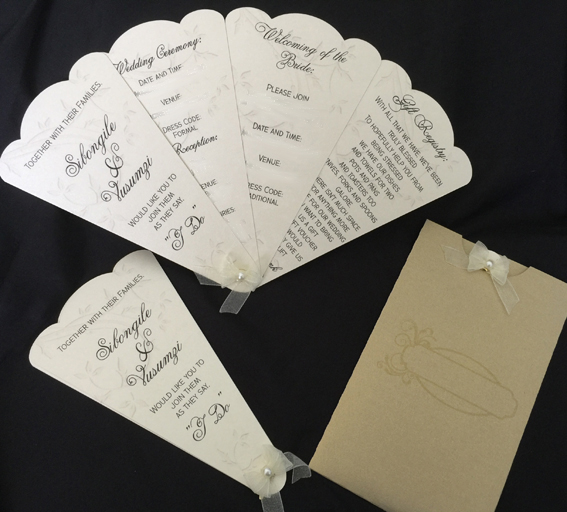 TOGETHER WITH THEIR FAMILIES,
Sibongile
&
Vusumzi
WOULD LIKE YOU TO
JOIN THEM
AS THEY SAY,
"I Do"
Wedding Ceremony:
DATE AND TIME
VENUE:
DRESS CODE
FORMAL
Reception:
VENUE:
Welcoming of the
Bride:
PLEASE JOIN
DATE AND TIME:
VENUE:
DRESS CODE:
Gift Registry:
WITH ALL THAT WE HAVE, WE'VE BEEN
TRULY BLESSED
TO HOPEFULLY HELP YOU FROM
BEING STRESSED
WE HAVE OUR DISHES
AND TOWELS FOR TWO
POTS AND PANS
AND TOASTERS TOO
FORKS AND SPOONS
GALORE
ISN'T MUCH SPACE
FOR ANYTHING MORE
FOR OUR WEDDING
WANT TO BRING
US A GIFT
VOUCHER
WOULD
GIVE US
LIFT
TOGETHER WITH THEIR FAMILIES,
Sibongile
&
Vusumzi
WOULD LIKE YOU TO
JOIN THEM
AS THEY SAY,
"I Do"